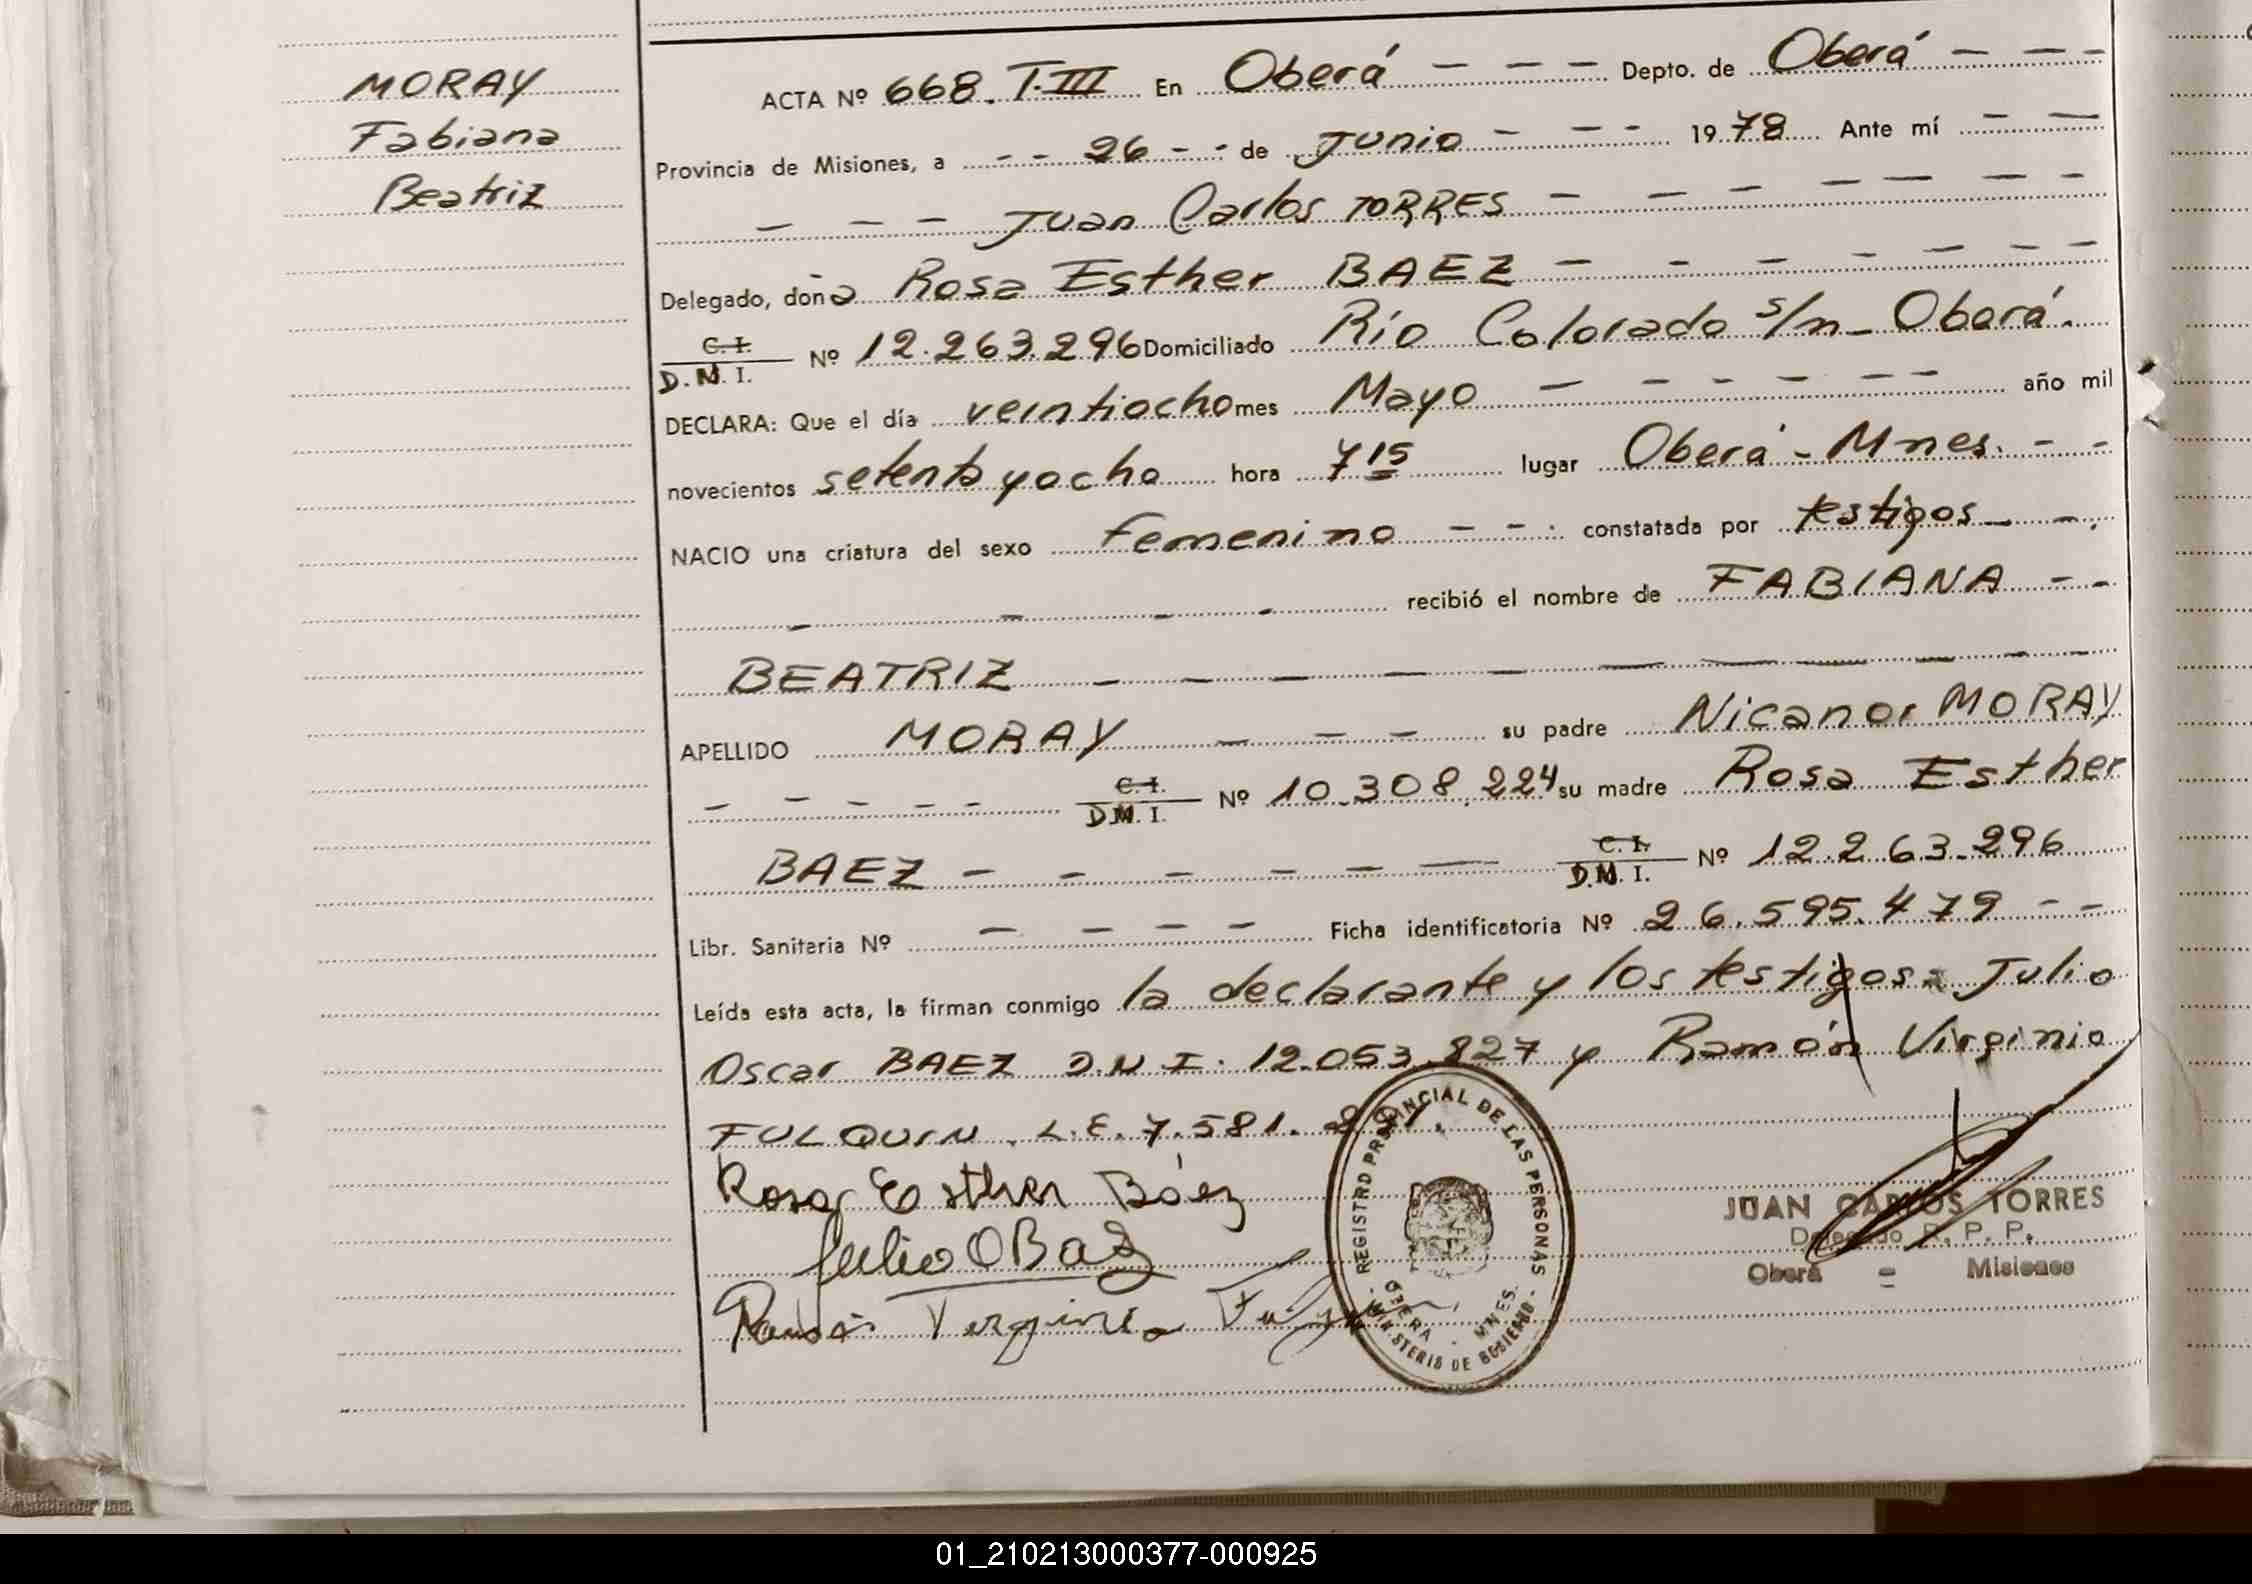 MORAY
Fabiana
Beatriz
ACTA Nº 668. T.III En Oberá - - - Depto. de Oberá - - -
Provincia de Misiones, a - - 26 - - de Junio - - - 1978 Ante mí - -
- - - Juan Carlos TORRES - - - - - - -
Delegado, doña Rosa Esther BAEZ - - - - - - -
C. I.
D. N. I. Nº 12.263.296 Domiciliado Río Colorado s/n - Oberá.
DECLARA: Que el día veintiocho mes Mayo - - - - - - año mil
novecientos setenta y ocho hora 7 15 lugar Oberá - Mnes. - -
NACIO una criatura del sexo femenino - - - constatada por testigos - -
- - - - recibió el nombre de FABIANA - -
BEATRIZ - - - - - - - - - - -
APELLIDO MORAY - - - su padre Nicanor MORAY
- - - - - C. I.
D. N. I. Nº 10.308.224 su madre Rosa Esther
BAEZ - - - - - - C. I.
D. N. I. Nº 12.263.296
Libr. Sanitaria Nº - - - - Ficha identificatoria Nº 26.595.479 - -
Leída esta acta, la firman conmigo la declarante y los testigos Julio
Oscar BAEZ D.N.I. 12.053.827 y Ramón Virginio
FULQUIN. L.E. 7.581.
Rosa Esther Báez
Julio O Baez
Virginio
REGISTRO PROVINCIAL DE LAS PERSONAS
OBERA - MNES.
MINISTERIO DE GOBIERNO
JUAN CARLOS TORRES
Delegado R. P. P.
Oberá - Misiones
01_210213000377-000925